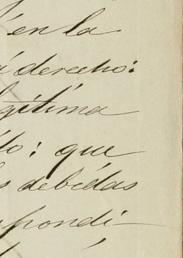 en la
derecho:
legítima
do: que
debidas
spondi-